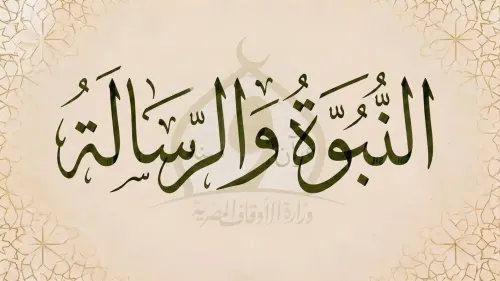 النُّبُوَّةُ وَالرِّسَالَةُ
وزارة الأوقاف المصرية